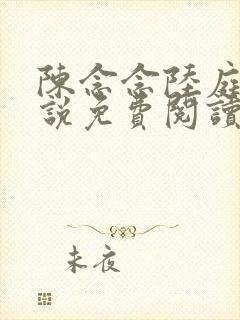 陳念念陸庭
說免費閱讀
未夜